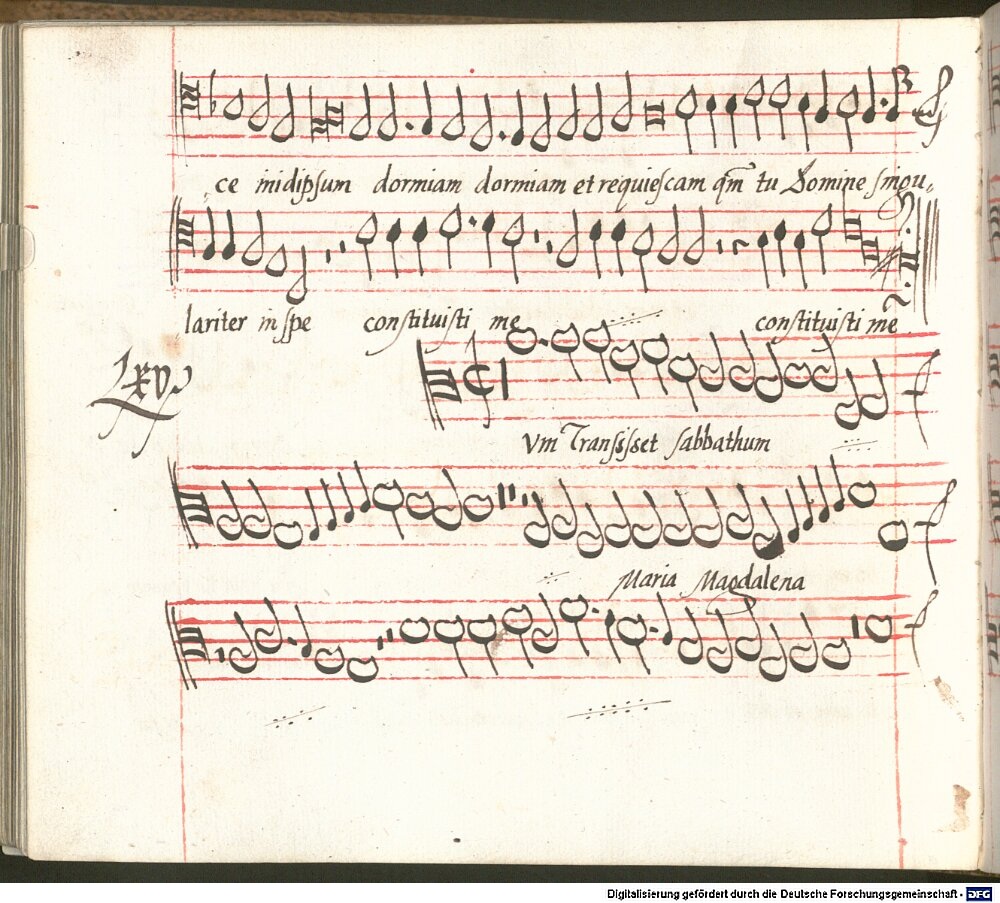 ce inidipsum dormiam dormiam et requiescam qm̃ tu Domine singu-
lariter in spe constituisti me constituisti me
Lxv
Vm Transisset sabbathum
Maria Magdalena
Digitalisierung gefördert durch die Deutsche Forschungsgemeinschaft - DFG